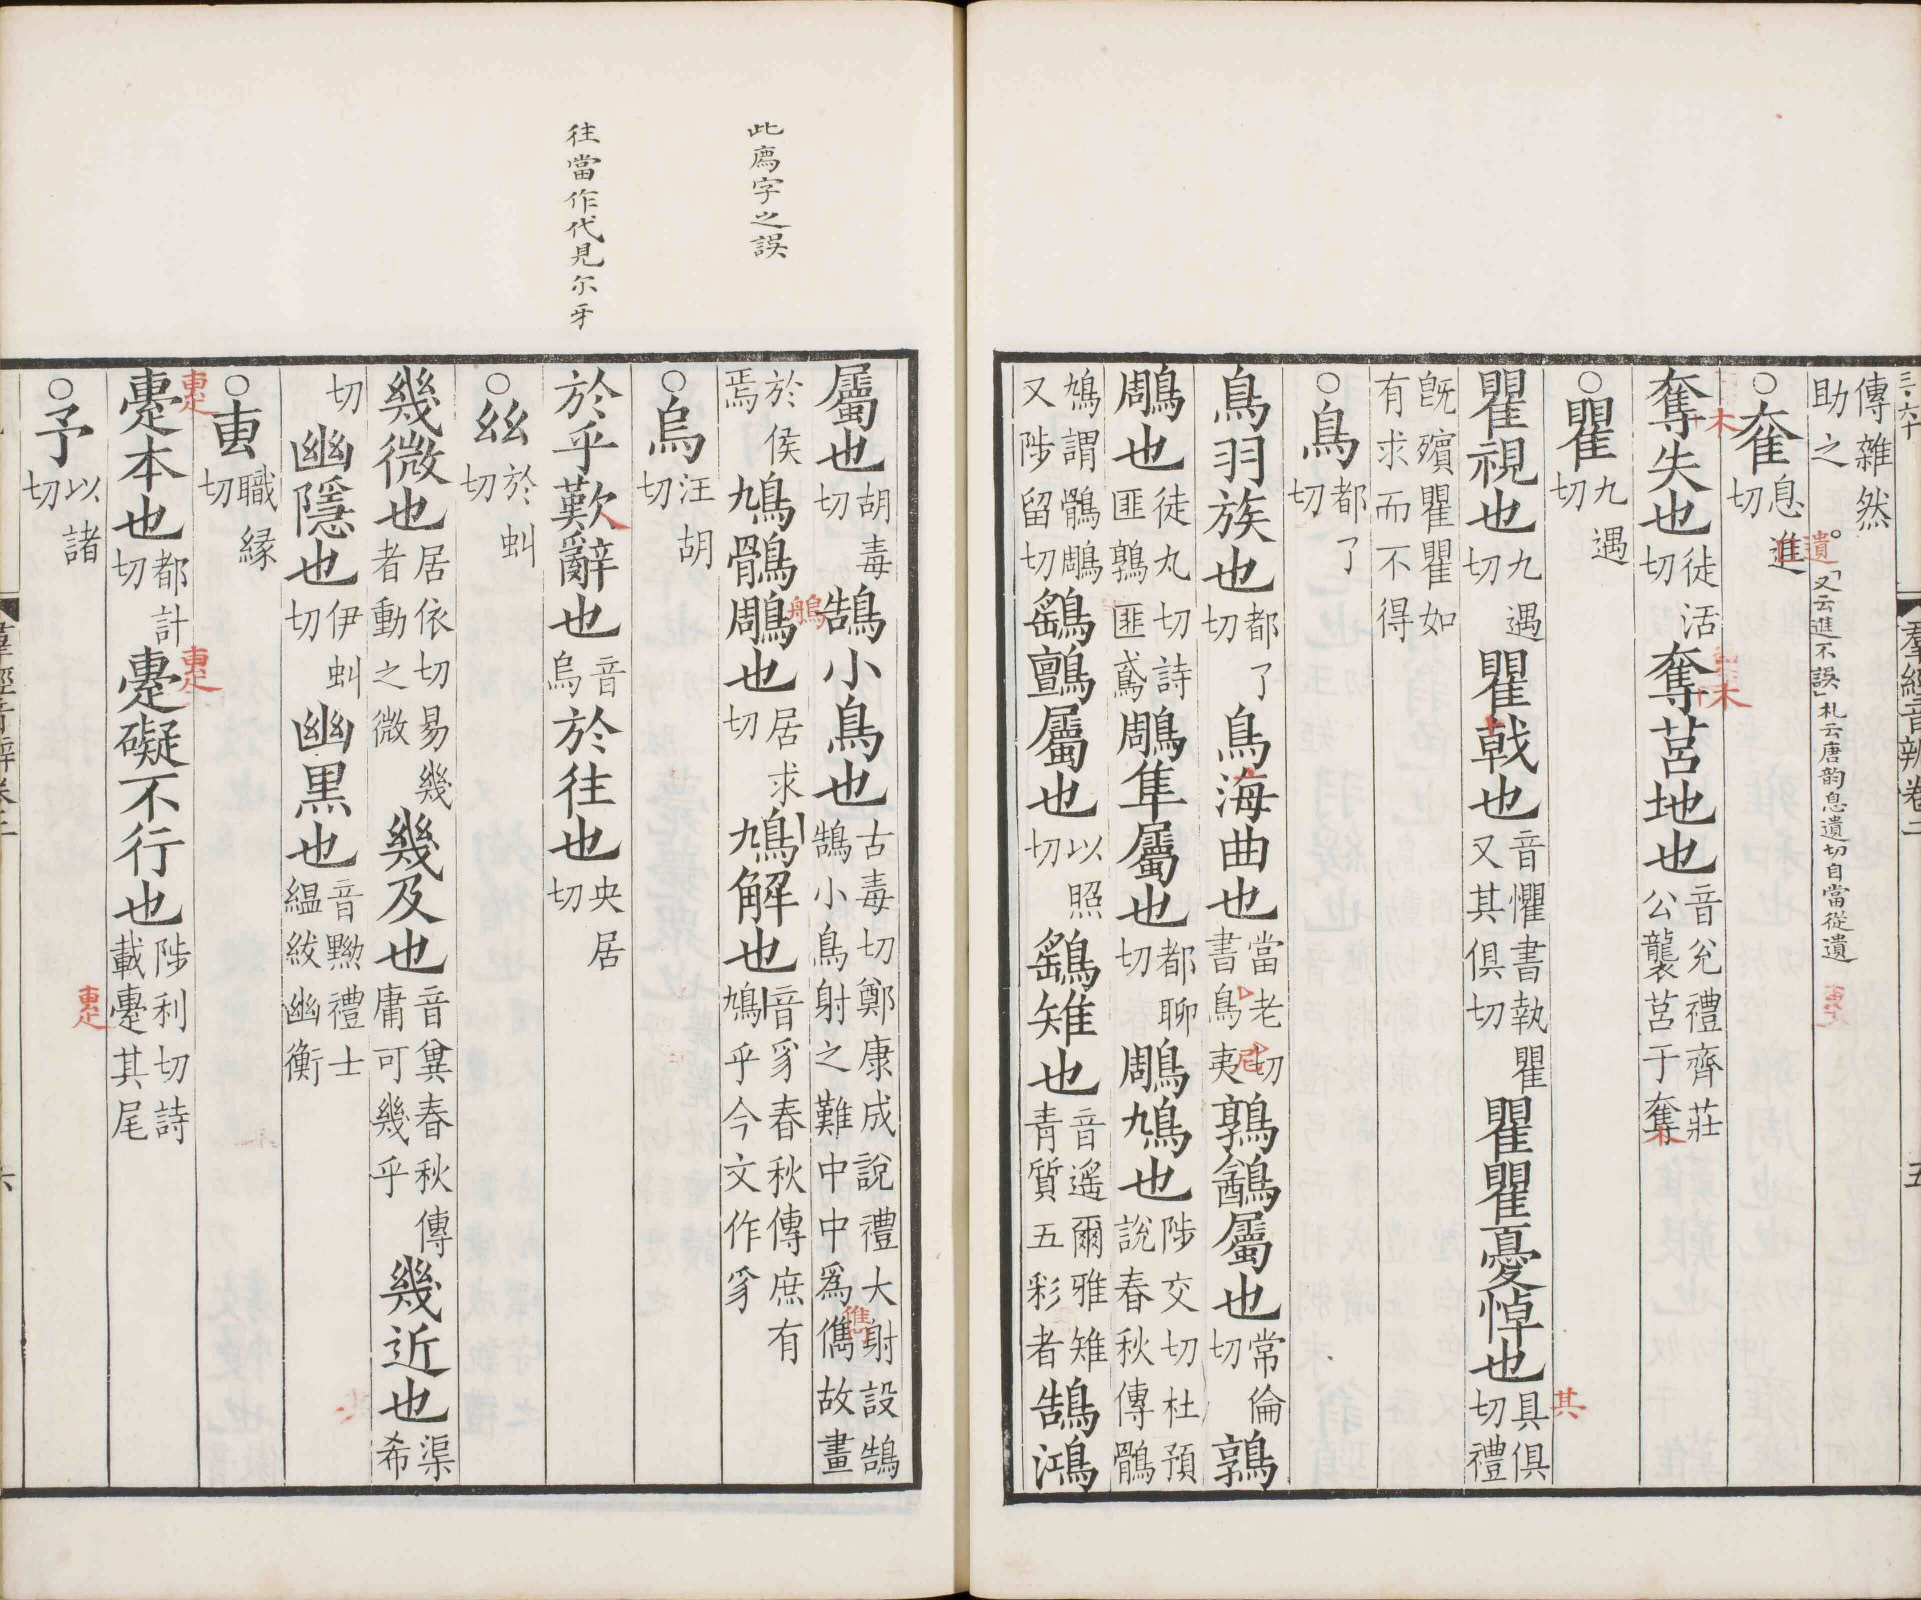 三・六十
羣經音辨卷二
五
傳雜然
助之
又云進不誤札云唐韵息遺切自當從遺
遺
○奞息進
切
奪失也徒活
切奪莒地也音兊禮齊莊
公襲莒于奪
○瞿九遇
切
瞿視也九遇
切瞿戟也音懼書執瞿
又其俱切瞿瞿憂悼也具俱
切禮
其
旣殯瞿瞿如
有求而不得
○鳥都了
切
鳥羽族也都了
切鳥海曲也當老切
書鳥夷鶉鷂屬也常倫
切鶉
鵰也徒丸切詩
匪鶉匪鳶鵰隼屬也都聊
切鵰鳩也陟交切杜預
說春秋傳鶻
鳩謂鶻鵰
又陟留切鷂鸇屬也以照
切鷂雉也音遥爾雅雉
青質五彩者鵠鴻
此鴈字之誤
往當作代見尔牙
屬也胡毒
切鵠小鳥也古毒切鄭康成說禮大射設鵠
鵠小鳥射之難中中爲儁故畫
於侯
焉鳩鶻鵰也居求
切鳩解也音豸春秋傳庶有
鳩乎今文作豸
○烏汪胡
切
於乎歎辭也音
烏於往也央居
切
○丝於虯
切
幾微也居依切易幾
者動之微幾及也音兾春秋傳
庸可幾乎幾近也渠
希
切幽隱也伊虯
切幽黒也音黝禮士
緼紱幽衡
○叀職縁
切
疐本也都計
切疐礙不行也陟利切詩
載疐其尾
○予以諸
切
羣經音辨卷二
六